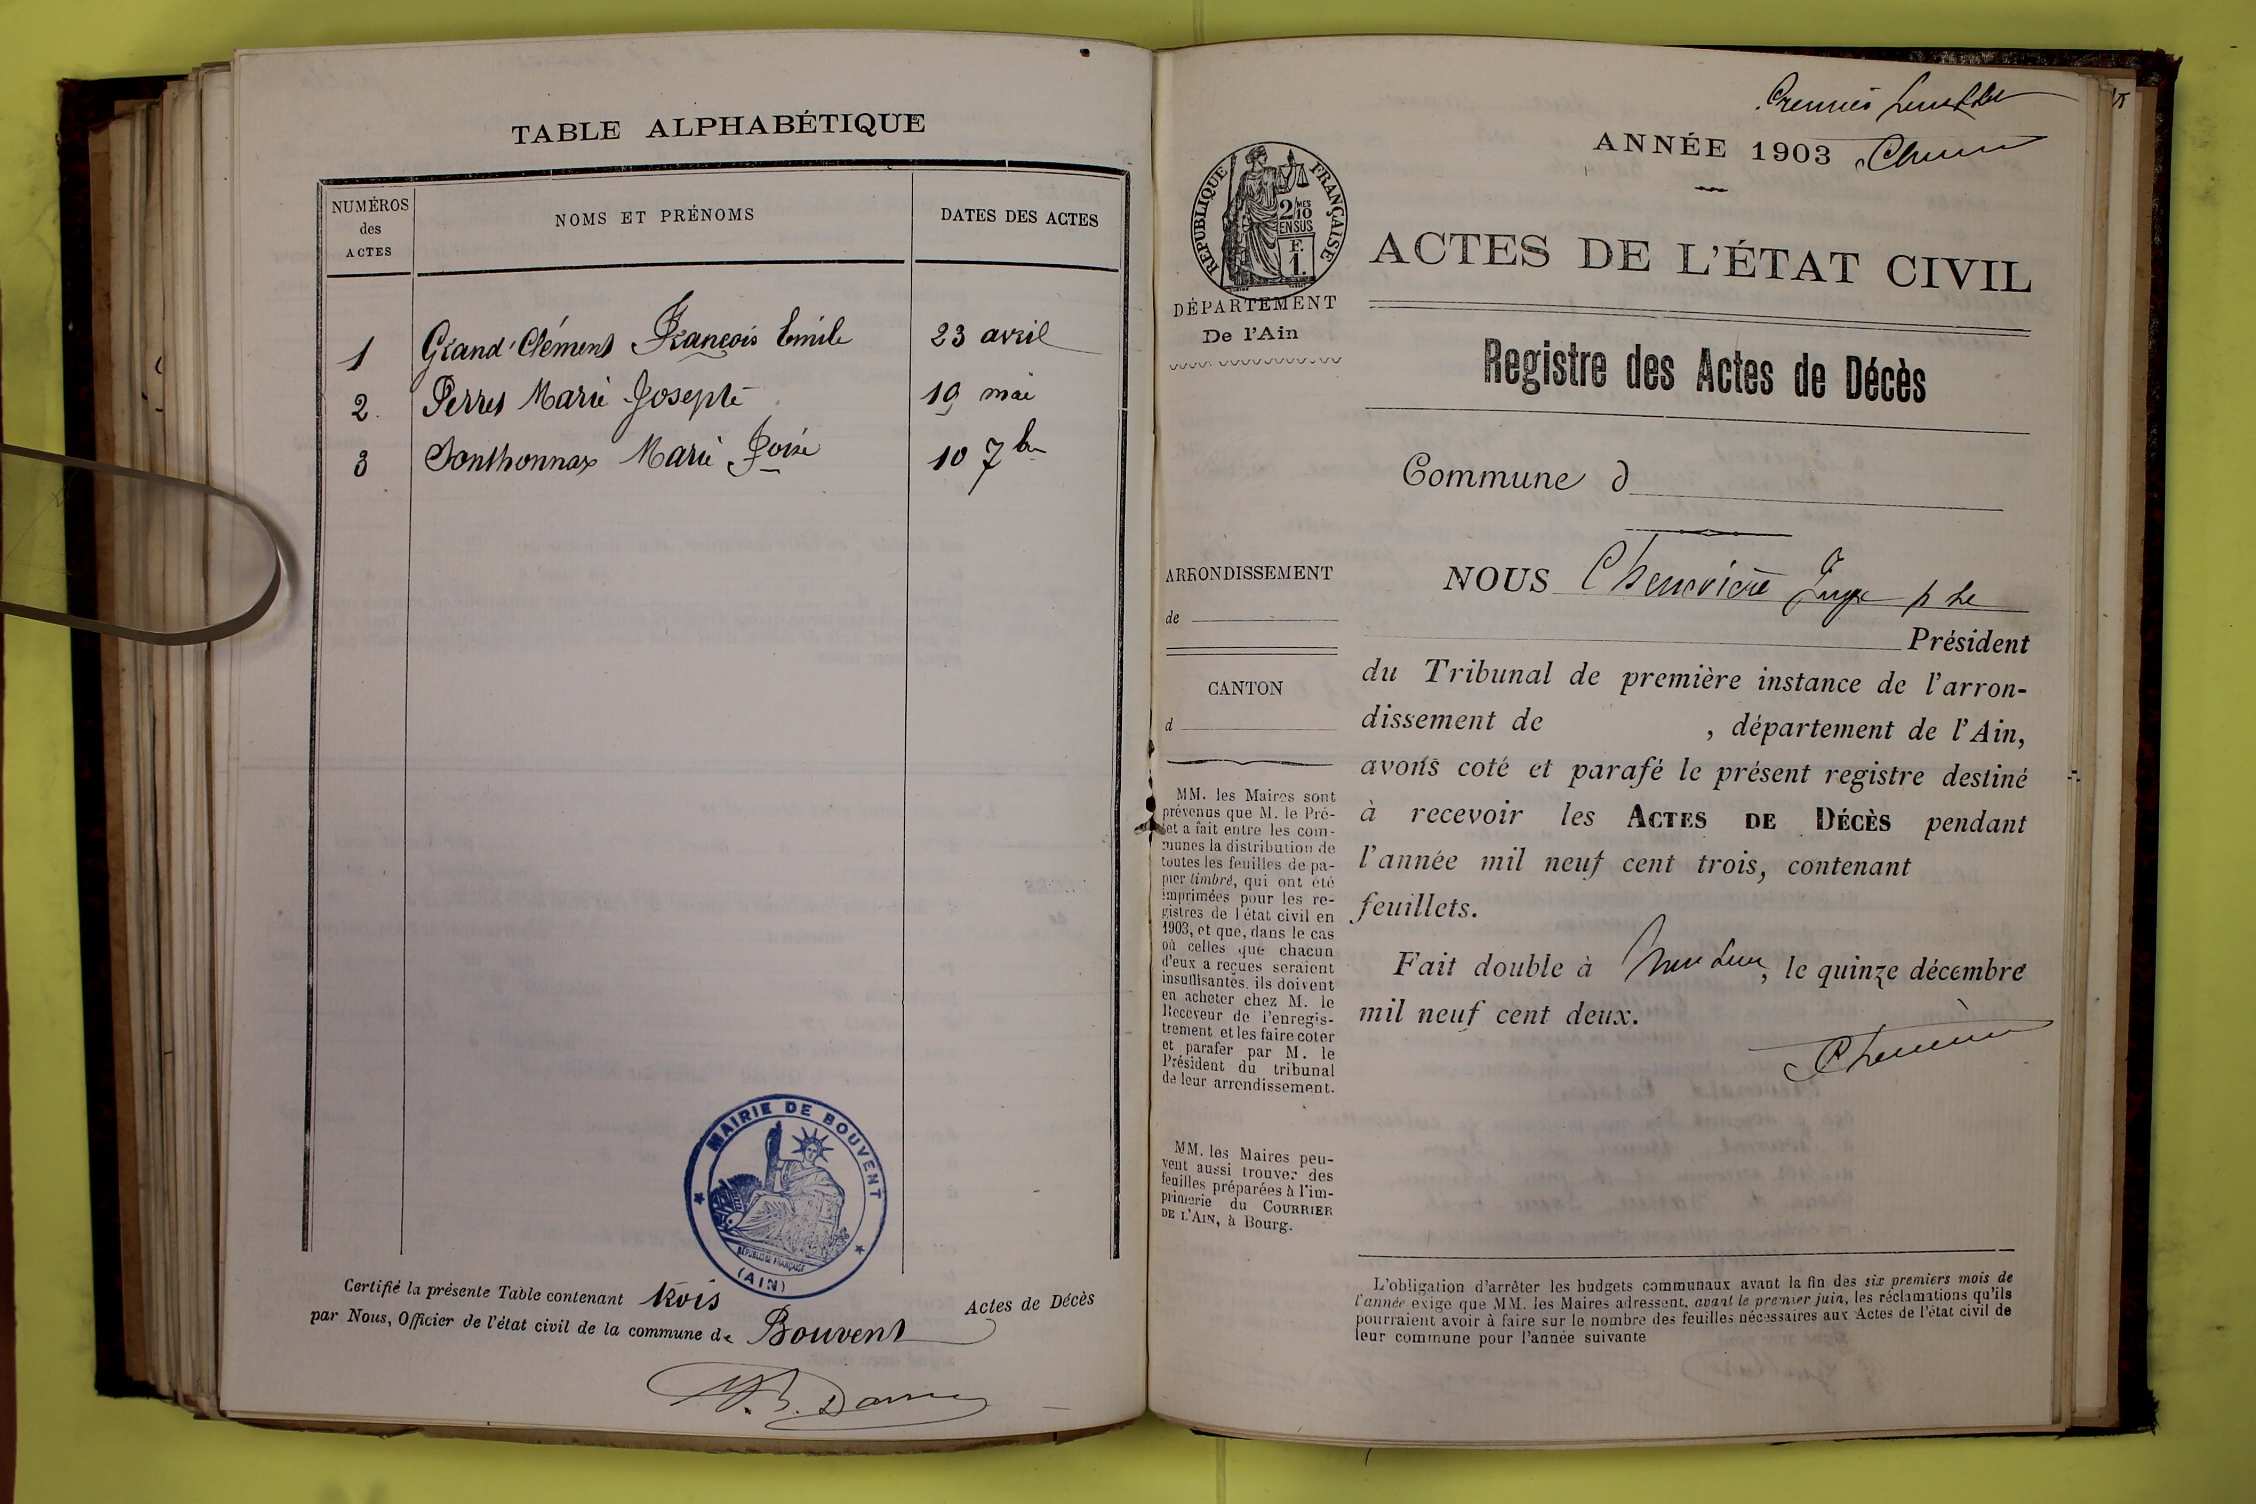 TABLE ALPHABÉTIQUE
NUMÉROS des ACTES
NOMS ET PRÉNOMS
DATES DES ACTES
1 Grand'Clément François Emile 23 avril
2 Perret Marie Josepte 19 mai
3 Sonthonnax Marie 10 7bre
MAIRIE DE BOUVENT
RÉPUBLIQUE FRANÇAISE
(AIN)
Certifié la présente Table contenant trois Actes de Décès
par Nous, Officier de l'état civil de la commune de Bouvent
Premier
ANNÉE 1903
RÉPUBLIQUE FRANÇAISE
2/10MES
EN SUS
F.
1.
ACTES DE L'ÉTAT CIVIL
DÉPARTEMENT
De l'Ain
Registre des Actes de Décès
Commune d
ARRONDISSEMENT
de
CANTON
d
NOUS Chenevière Juge p le
Président
du Tribunal de première instance de l'arron-
dissement de , département de l'Ain,
avons coté et parafé le présent registre destiné
à recevoir les ACTES DE DÉCÈS pendant
l'année mil neuf cent trois, contenant
feuillets.
Fait double à , le quinze décembre
mil neuf cent deux.
MM. les Maires sont
prévenus que M. le Pré-
fet a fait entre les com-
munes la distribution de
toutes les feuilles de pa-
pier timbré, qui ont été
imprimées pour les re-
gistres de l'état civil en
1903, et que, dans le cas
où celles que chacun
d'eux a reçues seraient
insuffisantes, ils doivent
en acheter chez M. le
Receveur de l'enregis-
trement et les faire coter
et parafer par M. le
Président du tribunal
de leur arrondissement.
MM. les Maires peu-
vent aussi trouver des
feuilles préparées à l'im-
primerie du COURRIER
DE L'AIN, à Bourg.
L'obligation d'arrêter les budgets communaux avant la fin des six premiers mois de
l'année exige que MM. les Maires adressent, avant le premier juin, les réclamations qu'ils
pourraient avoir à faire sur le nombre des feuilles nécessaires aux Actes de l'état civil de
leur commune pour l'année suivante